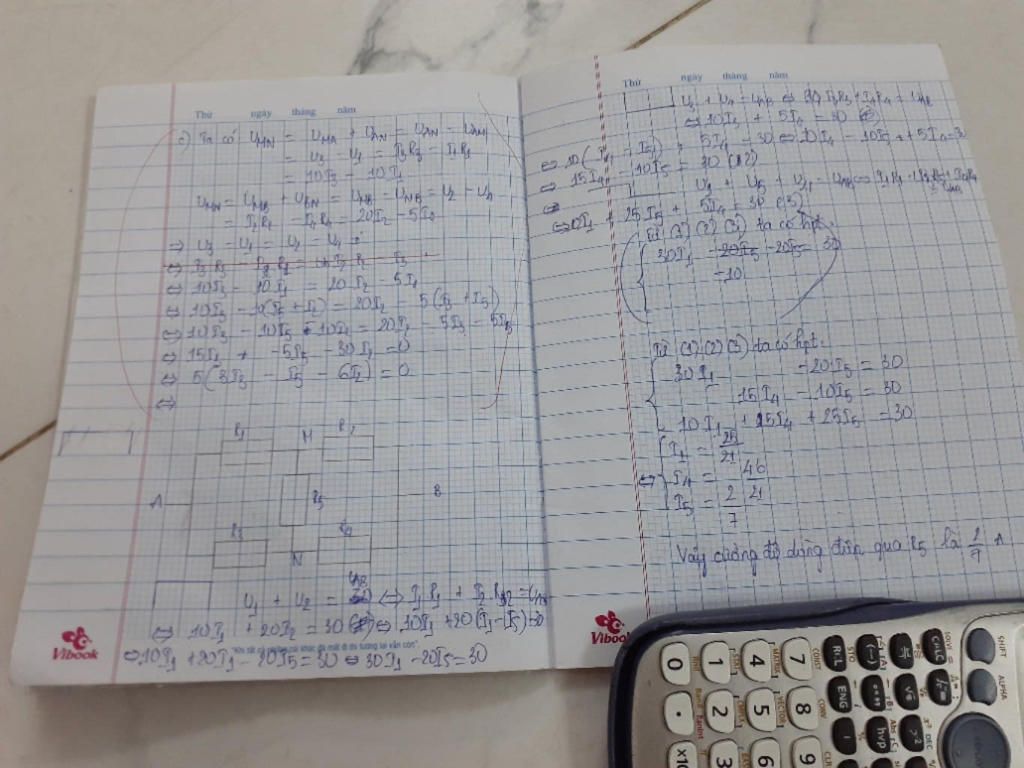 Thứ ngày tháng năm
c) Ta có U_MN = U_MA + U_AN = U_AN - U_AM
= U₃ - U₁ = I₃R₃ - I₁R₁
= 10I₃ - 10I₁
U_MN = U_MB + U_BN = U_MB - U_NB = U₂ - U₄
= 20I₂ - 5I₄
⇒ U₃ - U₁ = U₂ - U₄
⇔ 10I₃ - 10I₁ = 20I₂ - 5I₄
⇔ 10I₃ - 10(I₅ + I₂) = 20I₂ - 5(I₃ + I₅)
⇔ 10I₃ - 10I₅ - 10I₂ = 20I₂ - 5I₃ - 5I₅
⇔ 15I₃ + -5I₅ - 30I₂ = 0
⇔ 5(3I₃ - I₅ - 6I₂) = 0
⇔
R₁ M R₂
A R₅ B
R₃ N R₄
U₁ + U₂ = U_AB ⇔ I₁R₁ + I₂.R₂ = U_AB
⇔ 10I₁ + 20I₂ = 30 ⇔ 10I₁ + 20(I₁ - I₅) = 30
⇔ 10I₁ + 20I₁ - 20I₅ = 30 ⇔ 30I₁ - 20I₅ = 30
Vibook
Thứ ngày tháng năm
U₃ + U₄ = U_AB ⇔ I₃R₃ + I₄R₄ = U_AB
⇔ 10I₃ + 5I₄ = 30
⇔ 10(I₄ - I₅) + 5I₄ = 30 ⇔ 10I₄ - 10I₅ + 5I₄ = 30
⇔ 15I₄ - 10I₅ = 30 (2)
U₁ + U₅ + U₄ = U_AB ⇔ I₁R₁ + I₅R₅ + I₄R₄ = U_AB
⇔ 10I₁ + 25I₅ + 5I₄ = 30 (3)
Từ (1) (2) (3) ta có hpt:
30I₁ -20I₅ -20I₅ = 30
-10
Từ (1) (2) (3) ta có hpt:
30I₁ -20I₅ = 30
15I₄ - 10I₅ = 30
10I₁ + 5I₄ + 25I₅ = 30
I₁ = 25/21
⇔ I₄ = 46/21
I₅ = 2/7
Vậy cường độ dòng điện qua R₅ là 2/7 A
Vibook
SHIFT ALPHA
CALC
ENG hyp
7 8 9
4 5 6
1 2 3
0 . x10